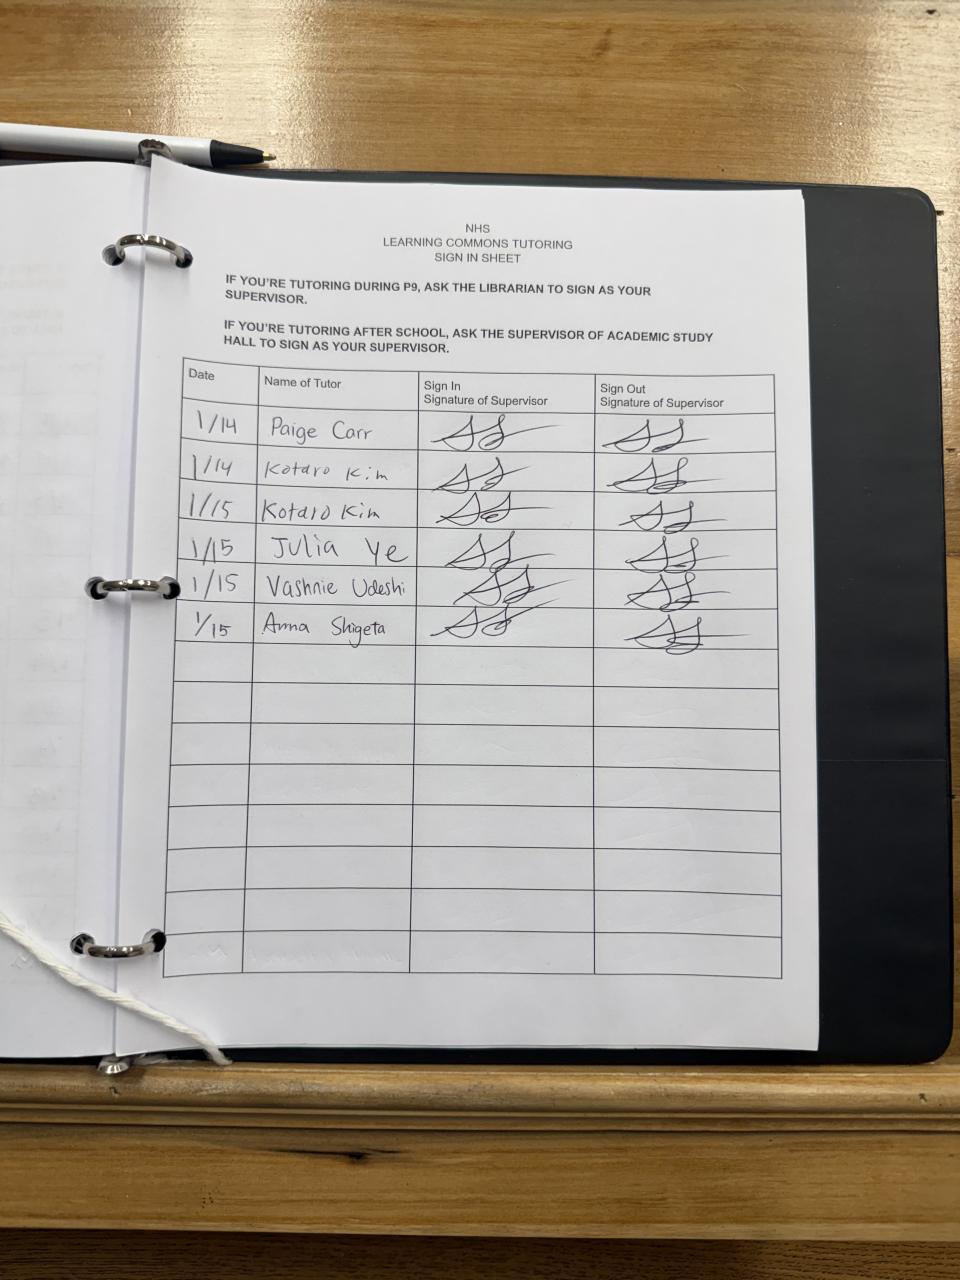 NHS
LEARNING COMMONS TUTORING
SIGN IN SHEET
IF YOU'RE TUTORING DURING P9, ASK THE LIBRARIAN TO SIGN AS YOUR
SUPERVISOR.
IF YOU'RE TUTORING AFTER SCHOOL, ASK THE SUPERVISOR OF ACADEMIC STUDY
HALL TO SIGN AS YOUR SUPERVISOR.
Date Name of Tutor Sign In Signature of Supervisor Sign Out Signature of Supervisor
1/14 Paige Carr
1/14 Kotaro Kim
1/15 Kotaro Kim
1/15 Julia Ye
1/15 Vashnie Udeshi
1/15 Anna Shigeta